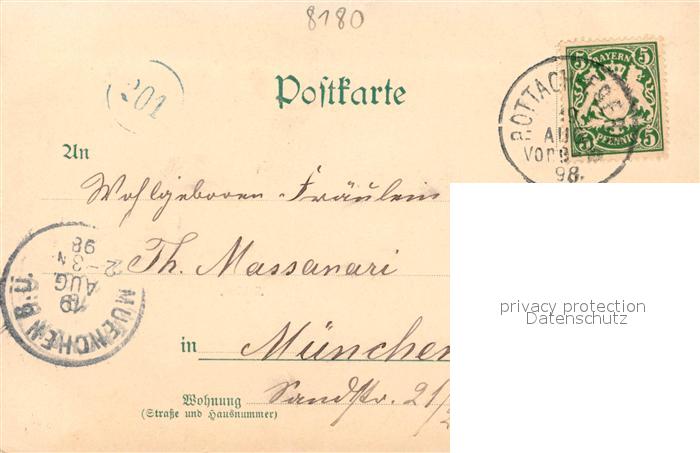 8180
201
Postkarte
5 BAYERN 5
5 PFENNIG 5
ROTTACH-EGERN
AUG
VORM
98.
An
Wohlgeboren Fräulein
Th. Massanari
MUENCHEN B.P.Ü.
19
AUG
2-3 N
98
in München
Wohnung Sandstr. 21/2
(Straße und Hausnummer)
privacy protection
Datenschutz